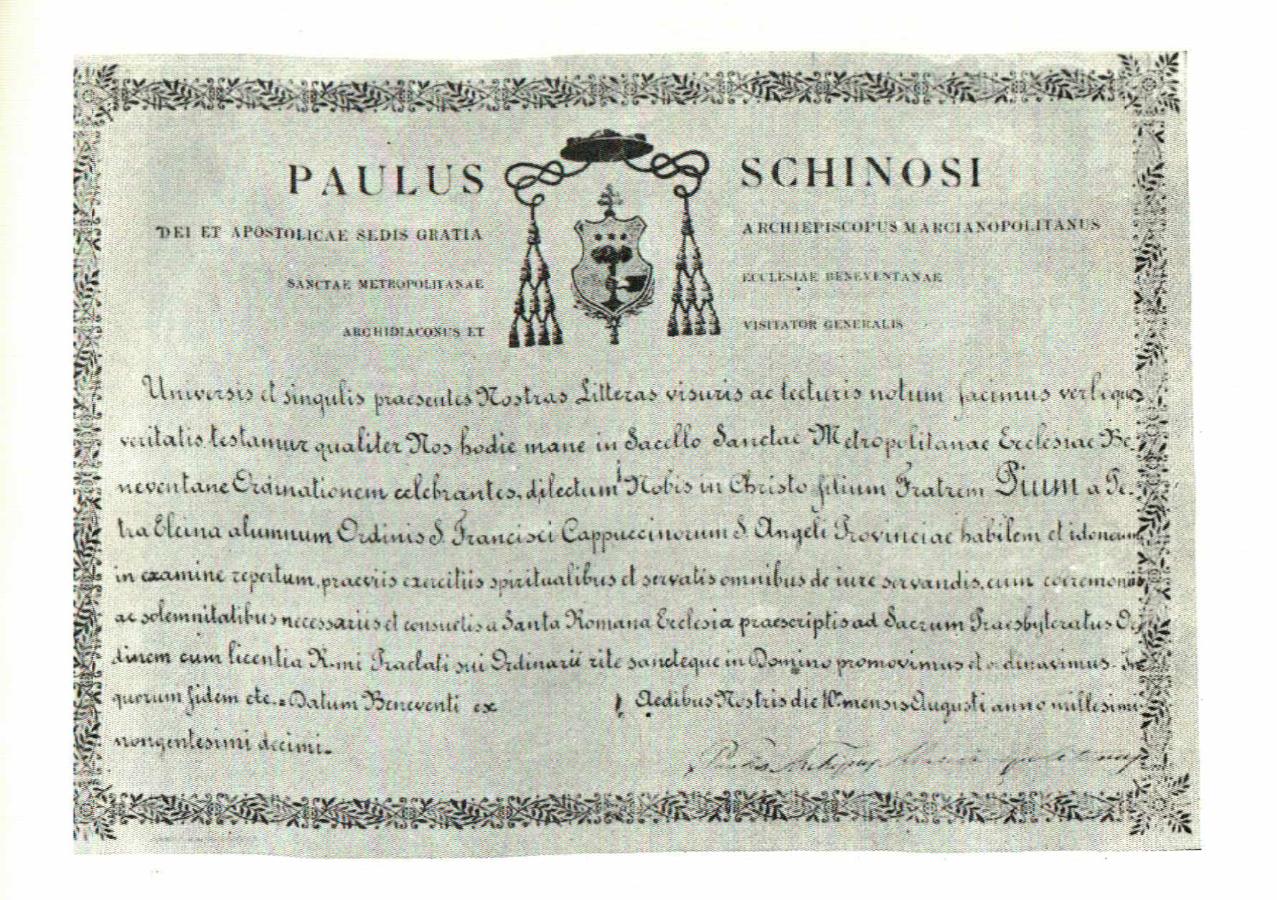 PAULUS SCHINOSI
DEI ET APOSTOLICAE SEDIS GRATIA ARCHIEPISCOPUS MARCIANOPOLITANUS
SANCTAE METROPOLITANAE ECCLESIAE BENEVENTANAE
ARCHIDIACONUS ET VISITATOR GENERALIS
Universis et singulis praesentes Nostras Litteras visuris ac lecturis notum facimus verboque
veritatis testamur qualiter Nos hodie mane in Sacello Sanctae Metropolitanae Ecclesiae Be-
neventane Ordinationem celebrantes, dilectum Nobis in Christo filium Fratrem Pium a Pe-
tra Elcina alumnum Ordinis S. Francisci Cappuccinorum S. Angeli Provinciae habilem et idoneum
in examine repertum, praeviis exercitiis spiritualibus et servatis omnibus de iure servandis, cum coeremoniis
ac solemnitatibus necessariis et consuetis a Santa Romana Ecclesia praescriptis ad Sacrum Praesbyteratus Or-
dinem cum licentia R.mi Praelati sui Ordinarii rite sancteque in Domino promovimus et ordinavimus. In
quorum fidem etc. Datum Beneventi ex Aedibus Nostris die 10 mensis Augusti anno millesimi
nongentesimi decimi.